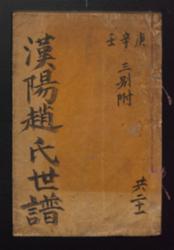 漢陽趙氏世譜
庚
辛
壬
三別附
共二十一